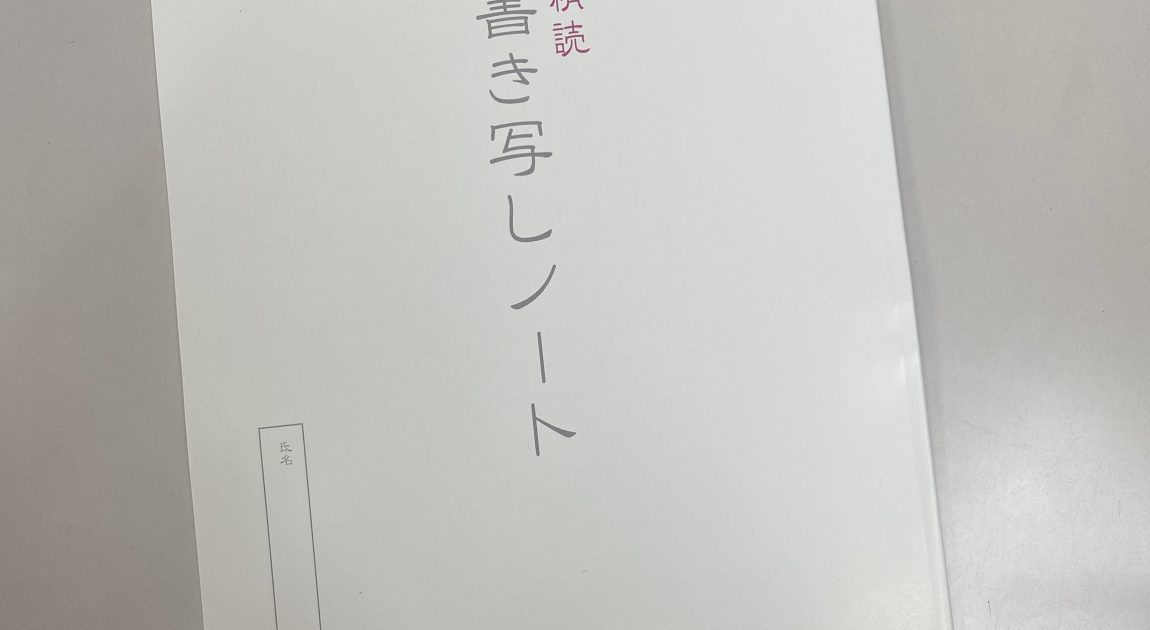 読
書き写しノート
氏名